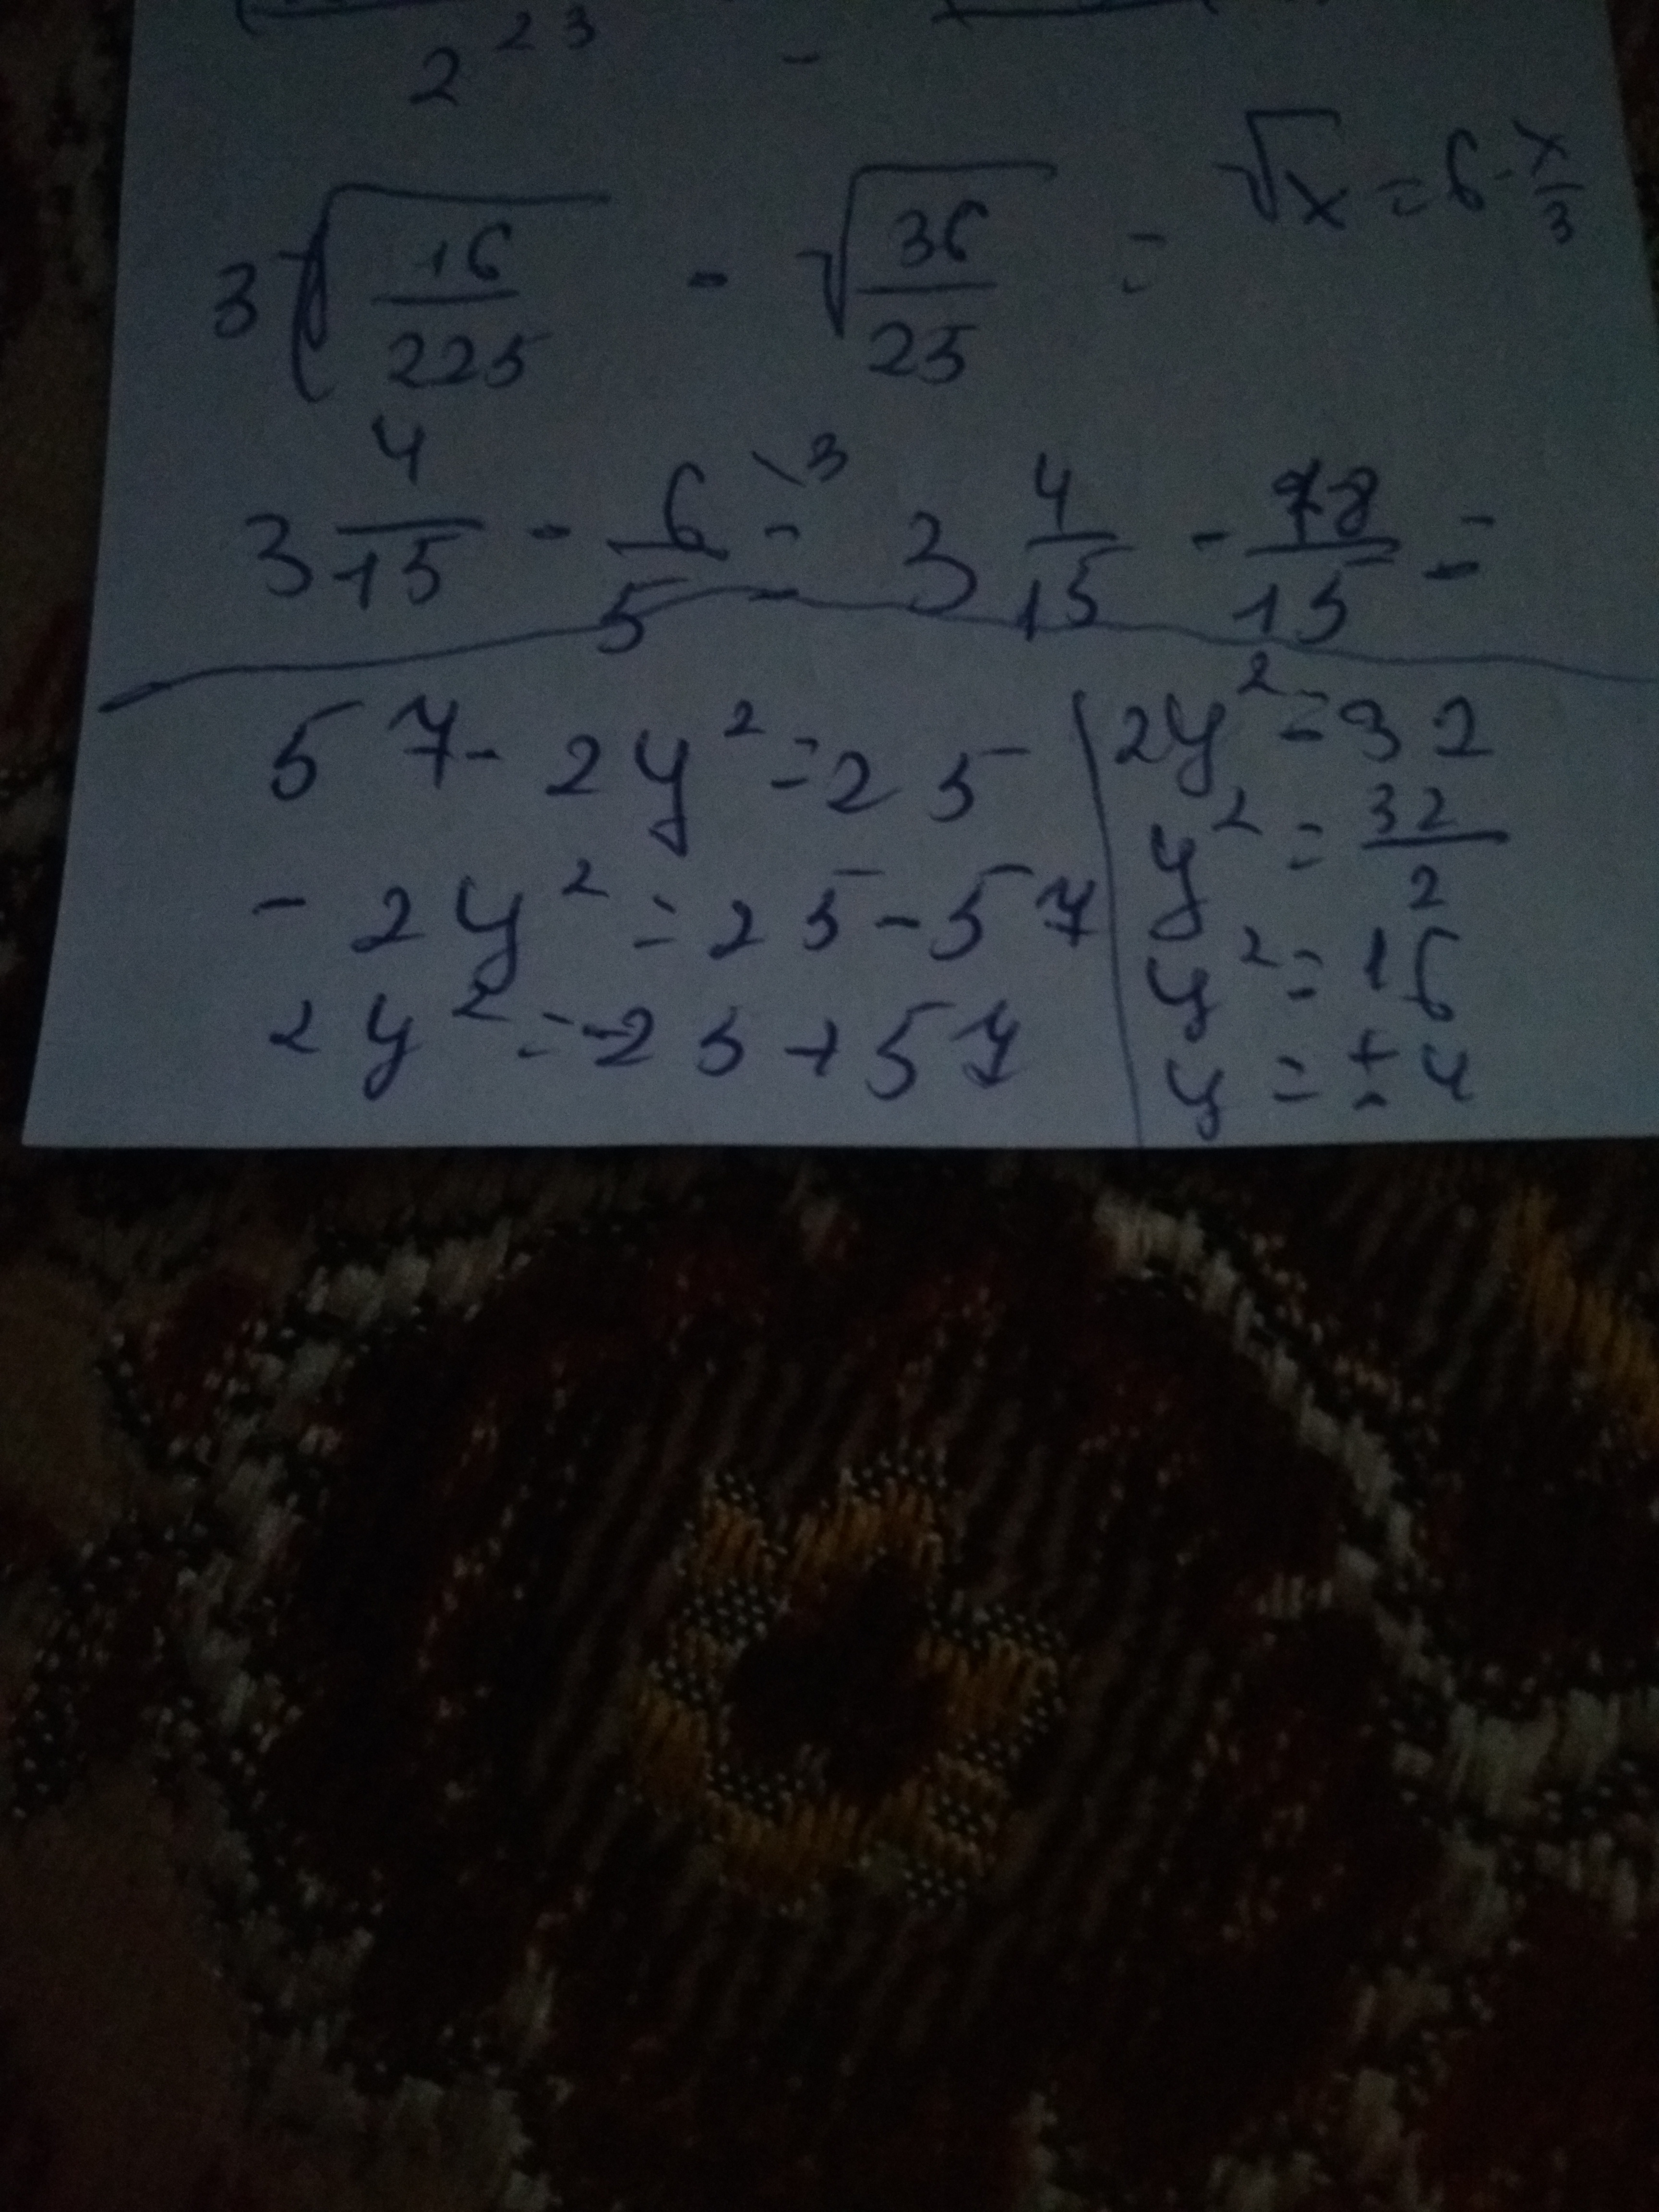 2²³ -
3√(16/225) - √(36/25) =
√x = 6 - x/3
3 4/15 - 6/5 \3 = 3 4/15 - 18/15 =
57 - 2y² = 25
- 2y² = 25 - 57
2y² = -25 + 57
2y² = 32
y² = 32/2
y² = 16
y = ± 4